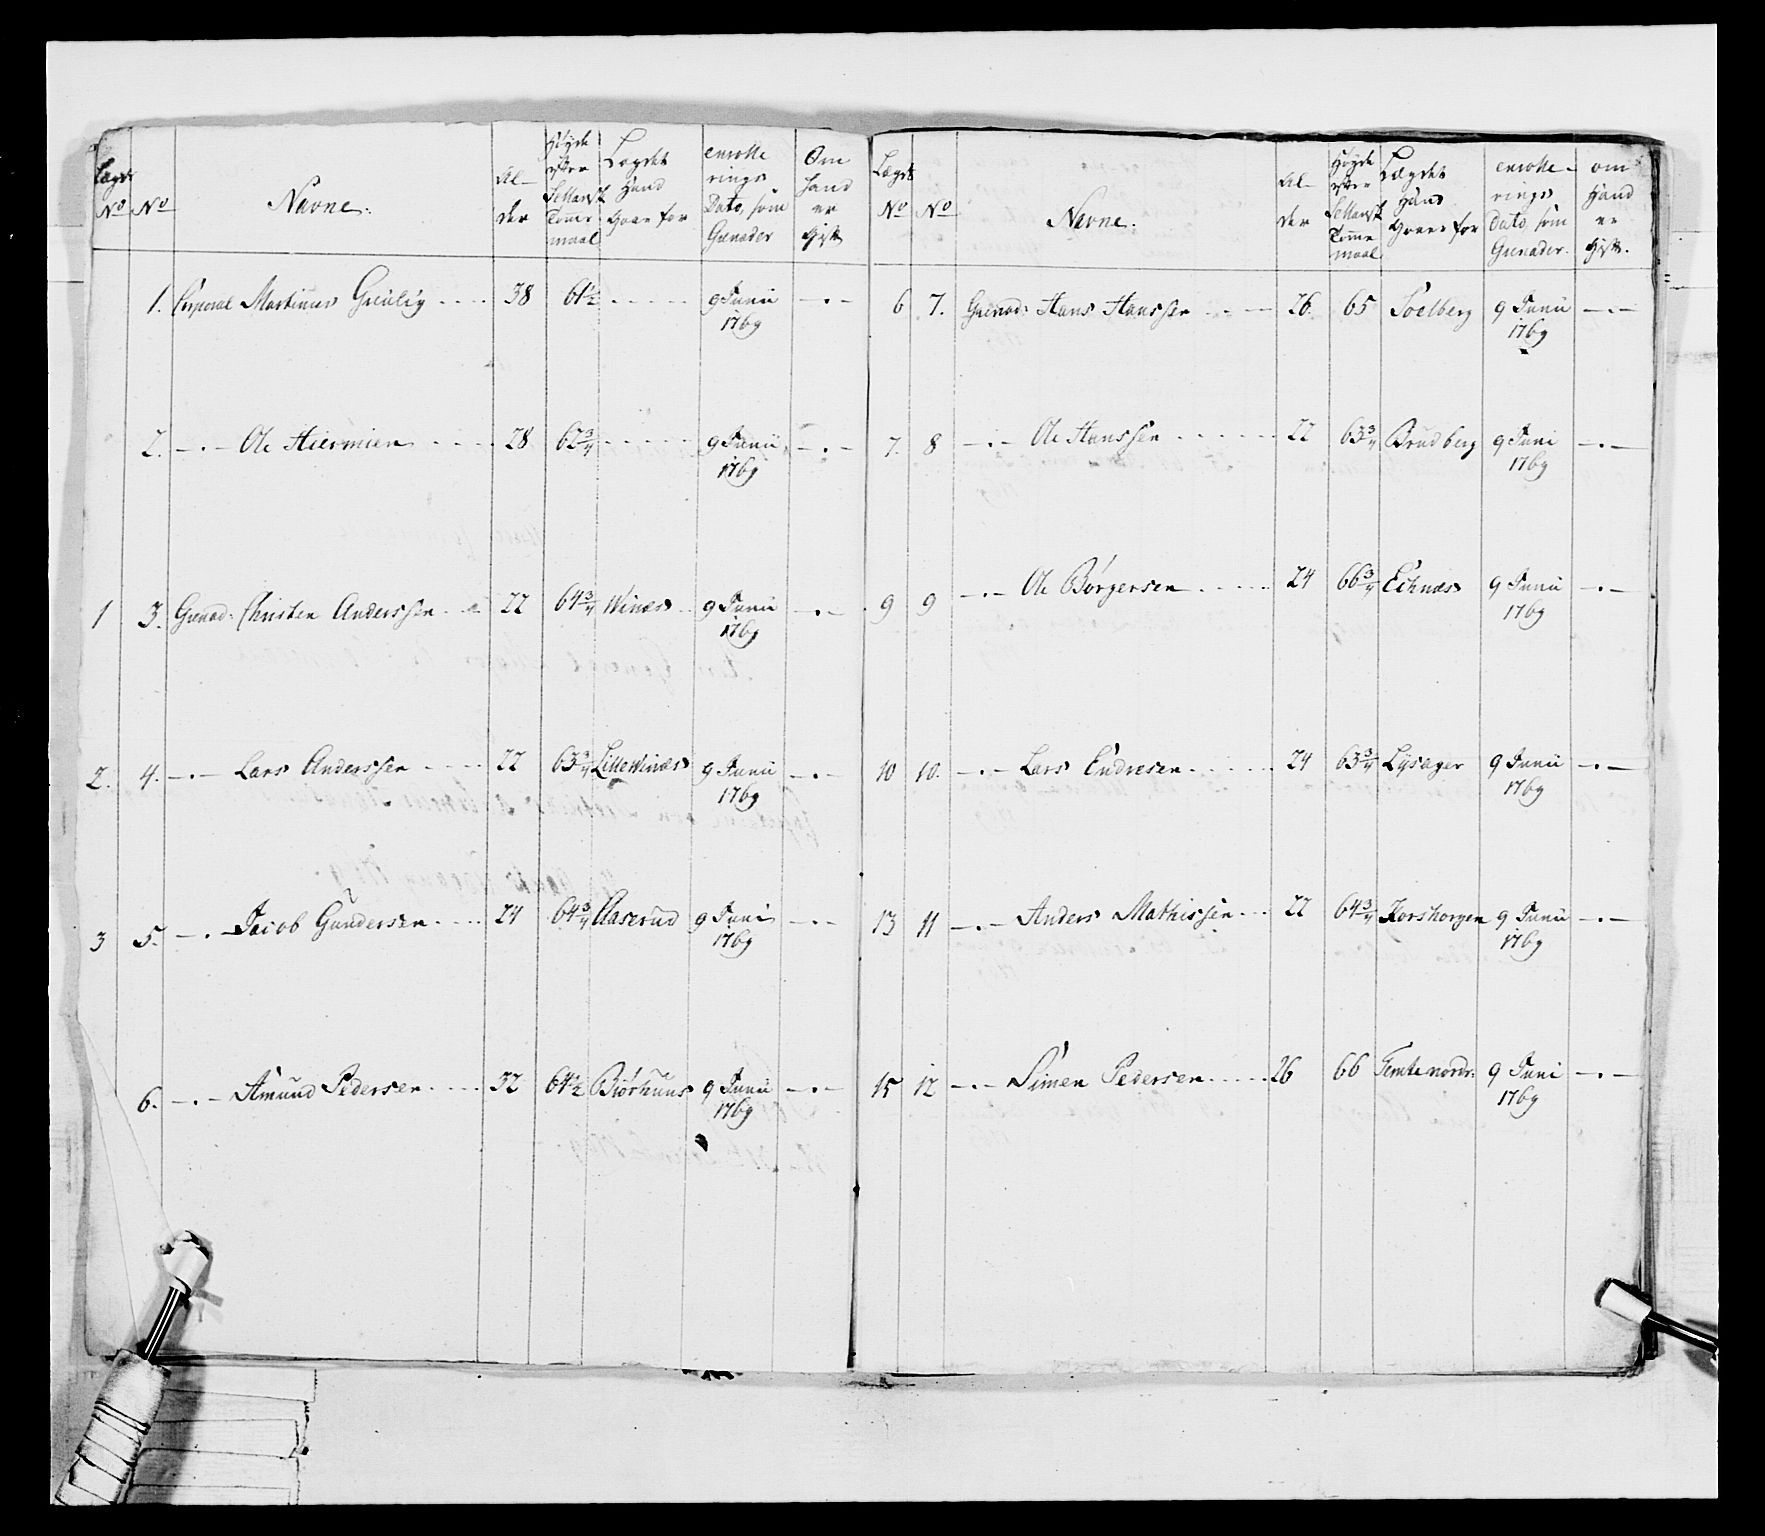 Lægds No | No | Navne. | Al- der | Høyde efter Sellansk Tomme maal | Lægdet Hand staar for | enrolle rings Dato, som Grenader | Om hand er gift
1. Corporal Martinus Greulig .... 38 61½ ..... 9 Junii 1769 —.—
2. —.— Ole Hiermien .... 28 62¾ ..... 9 Junii 1769 —.—
1 3. Grenad: Christen Anderssen .. 22 64¾ Winæs .. 9 Junii 1769 —.—
2. 4. —.— Lars Anderssen .... 22 63¾ Lille Winæs 9 Junii 1769 —.—
3 5. —.— Jacob Gundersen .... 24 64¾ Aaserud 9 Juni 1769 —.—
6. —.— Amund Pedersen .... 32 64½ Biørhuus 9 Junii 1769 —.—
Lægds No | No | Navne. | Al- der | Høyde efter Sellansk Tomme maal | Lægdet Hand staar for | enrolle- rings Dato som Grenader. | om Hand er gift.
6 7. Grenad: Hans Hanssen .... 26. 65 Soelberg 9 Junii 1769 —.—
7. 8 —.— Ole Hanssen ...... 22 63¾ Brudberg 9 Juni 1769 —.—
9 9 —.— Ole Børgersen ..... 24 66¾ Echnæs 9 Junii 1769 —.—
10 10. —.— Lars Endresen ..... 24 63¾ Lysager 9 Junii 1769 —.—
13 11 —.— Anders Mathissen ... 22 64¾ Korshorgen 9 Junii 1769 —.—
15 12 —.— Simen Pedersen ..... 26 66 Temte nordr: 9 Juni 1769 —.—